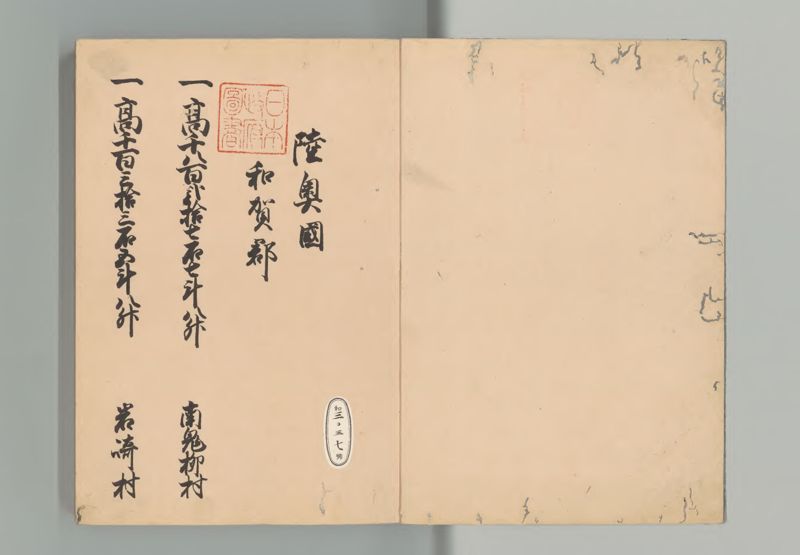 陸奥國
和賀郡
日本
政府
圖書
一高千八百弐拾七石七斗八升 南鬼柳村
一高千百三拾三石五斗八升 岩崎村